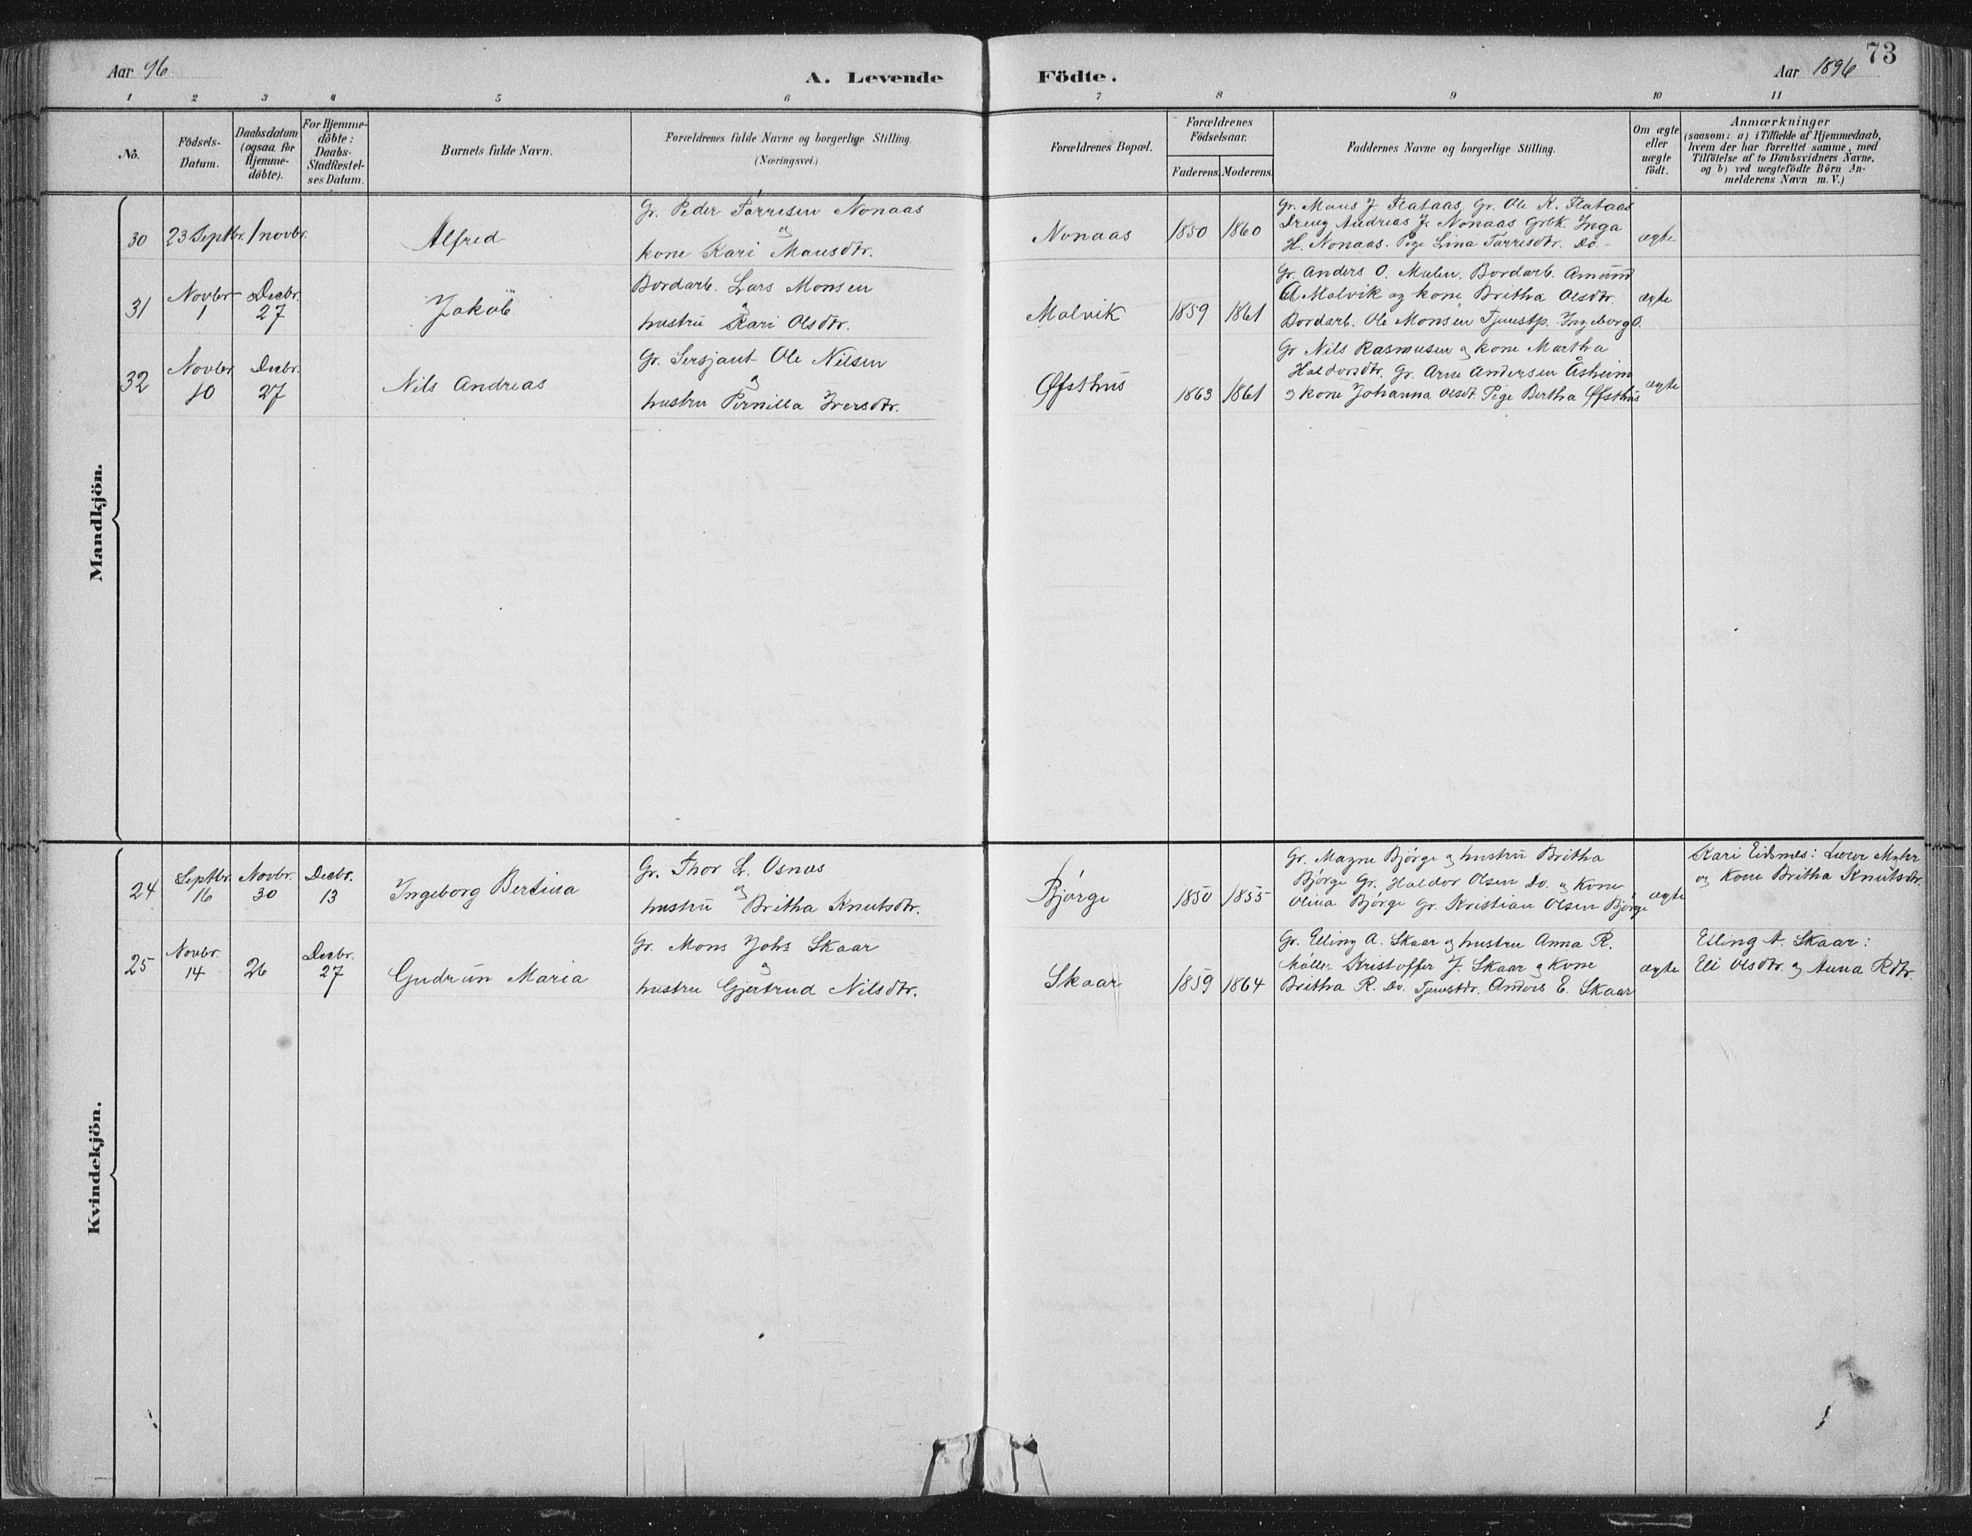 Aar 96. A. Levende Födte. Aar 1896 73
1 2 3 4 5 6 7 8 9 10 11
No. Födsels-Datum. Daabsdatum (ogsaa for Hjemme-döbte). For Hjemme-döbte: Daabs-Stadfæstel-ses Datum. Barnets fulde Navn. Forældrenes fulde Navne og borgerlige Stilling. (Næringsvei.) Forældrenes Bopæl. Forældrenes Födselsaar. Faderens. Moderens. Faddernes Navne og borgerlige Stilling. Om ægte eller uægte födt. Anmærkninger
(saasom: a) i Tilfælde af Hjemmedaab,
hvem der har forrettet samme, med
Tilföielse af to Daabsvidners Navne,
og b) ved uægtefödte Börn An-
melderens Navn m. V.)
Mandkjön.
Gr. Peder Torresen Nonaas
og
kone Kari Monsdtr.
30 23 Septbr. 1 novbr. Alfred Nonaas 1850 1860
Gr. Mons J. Flataas, Gr. Ole K. Flataas
Dreng Andreas J. Nonaas Grbk. Inga
H. Nonaas. Pige Lina Torresdtr. Do. ægte
Bordarb. Lars Monsen
og
hustru Kari Olsdtr.
31 Novbr 1 Decbr. 27 Jakob Malvik 1859 1861
Gr. Anders O. Malen. Bordarb. Amund
A Malvik og kone Britha Olsdtr. ægte
Bordarb. Ole Monsen Tjenestp. Ingeborg O.
Gr. Sersjant Ole Nilsen
og
hustru Pernilla Iversdtr.
32 Novbr 10 Decbr. 27 Nils Andreas Øfsthus 1863 1861
Gr Nils Rasmusen og kone Martha
Haldorsdtr. Gr. Arne Andersen Åsheim
og kone Johanna Olsdt. Pige Bertha Øfsthus ægte
Kvindekjön.
Gr. Thor L. Osnes
og
hustru Britha Knutsdtr.
24 Septbr. 16 Novbr. 30 Decbr. 13 Ingeborg Bertina Bjørge 1850 1855
Gr. Magne Bjørge og hustru Britha
Bjørge Gr. Haldor Olsen Do. og Kone
Olina Bjørge Gr. Kristian Olsen Bjørge ægte
Kari Eidsnes: Lærer
og Kone Britha Knutsdtr.
Gr. Mons Johs Skaar
og
hustru Gjertrud Nilsdtr.
25 Novbr. 14 26 Decbr. 27 Gudrun Maria Skaar 1859 1864
Gr. Elling A. Skaar og hustru Anna R.
Møller Kristoffer J. Skaar og Kone
Britha R. Do. Tjenestdr. Anders E. Skaar ægte
Elling A. Skaar:
Eli Olsdtr. og Anna Rdtr.